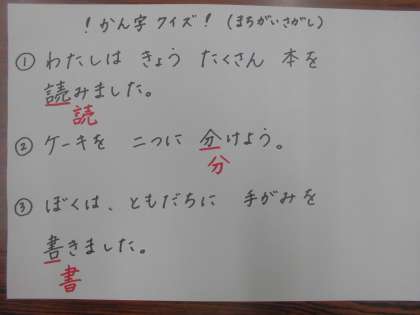 !かん字クイズ!(まちがいさがし)
①わたしは きょう たくさん 本を
読みました。
読
②ケーキを 二つに 分けよう。
分
③ぼくは、ともだちに 手がみを
書きました。
書